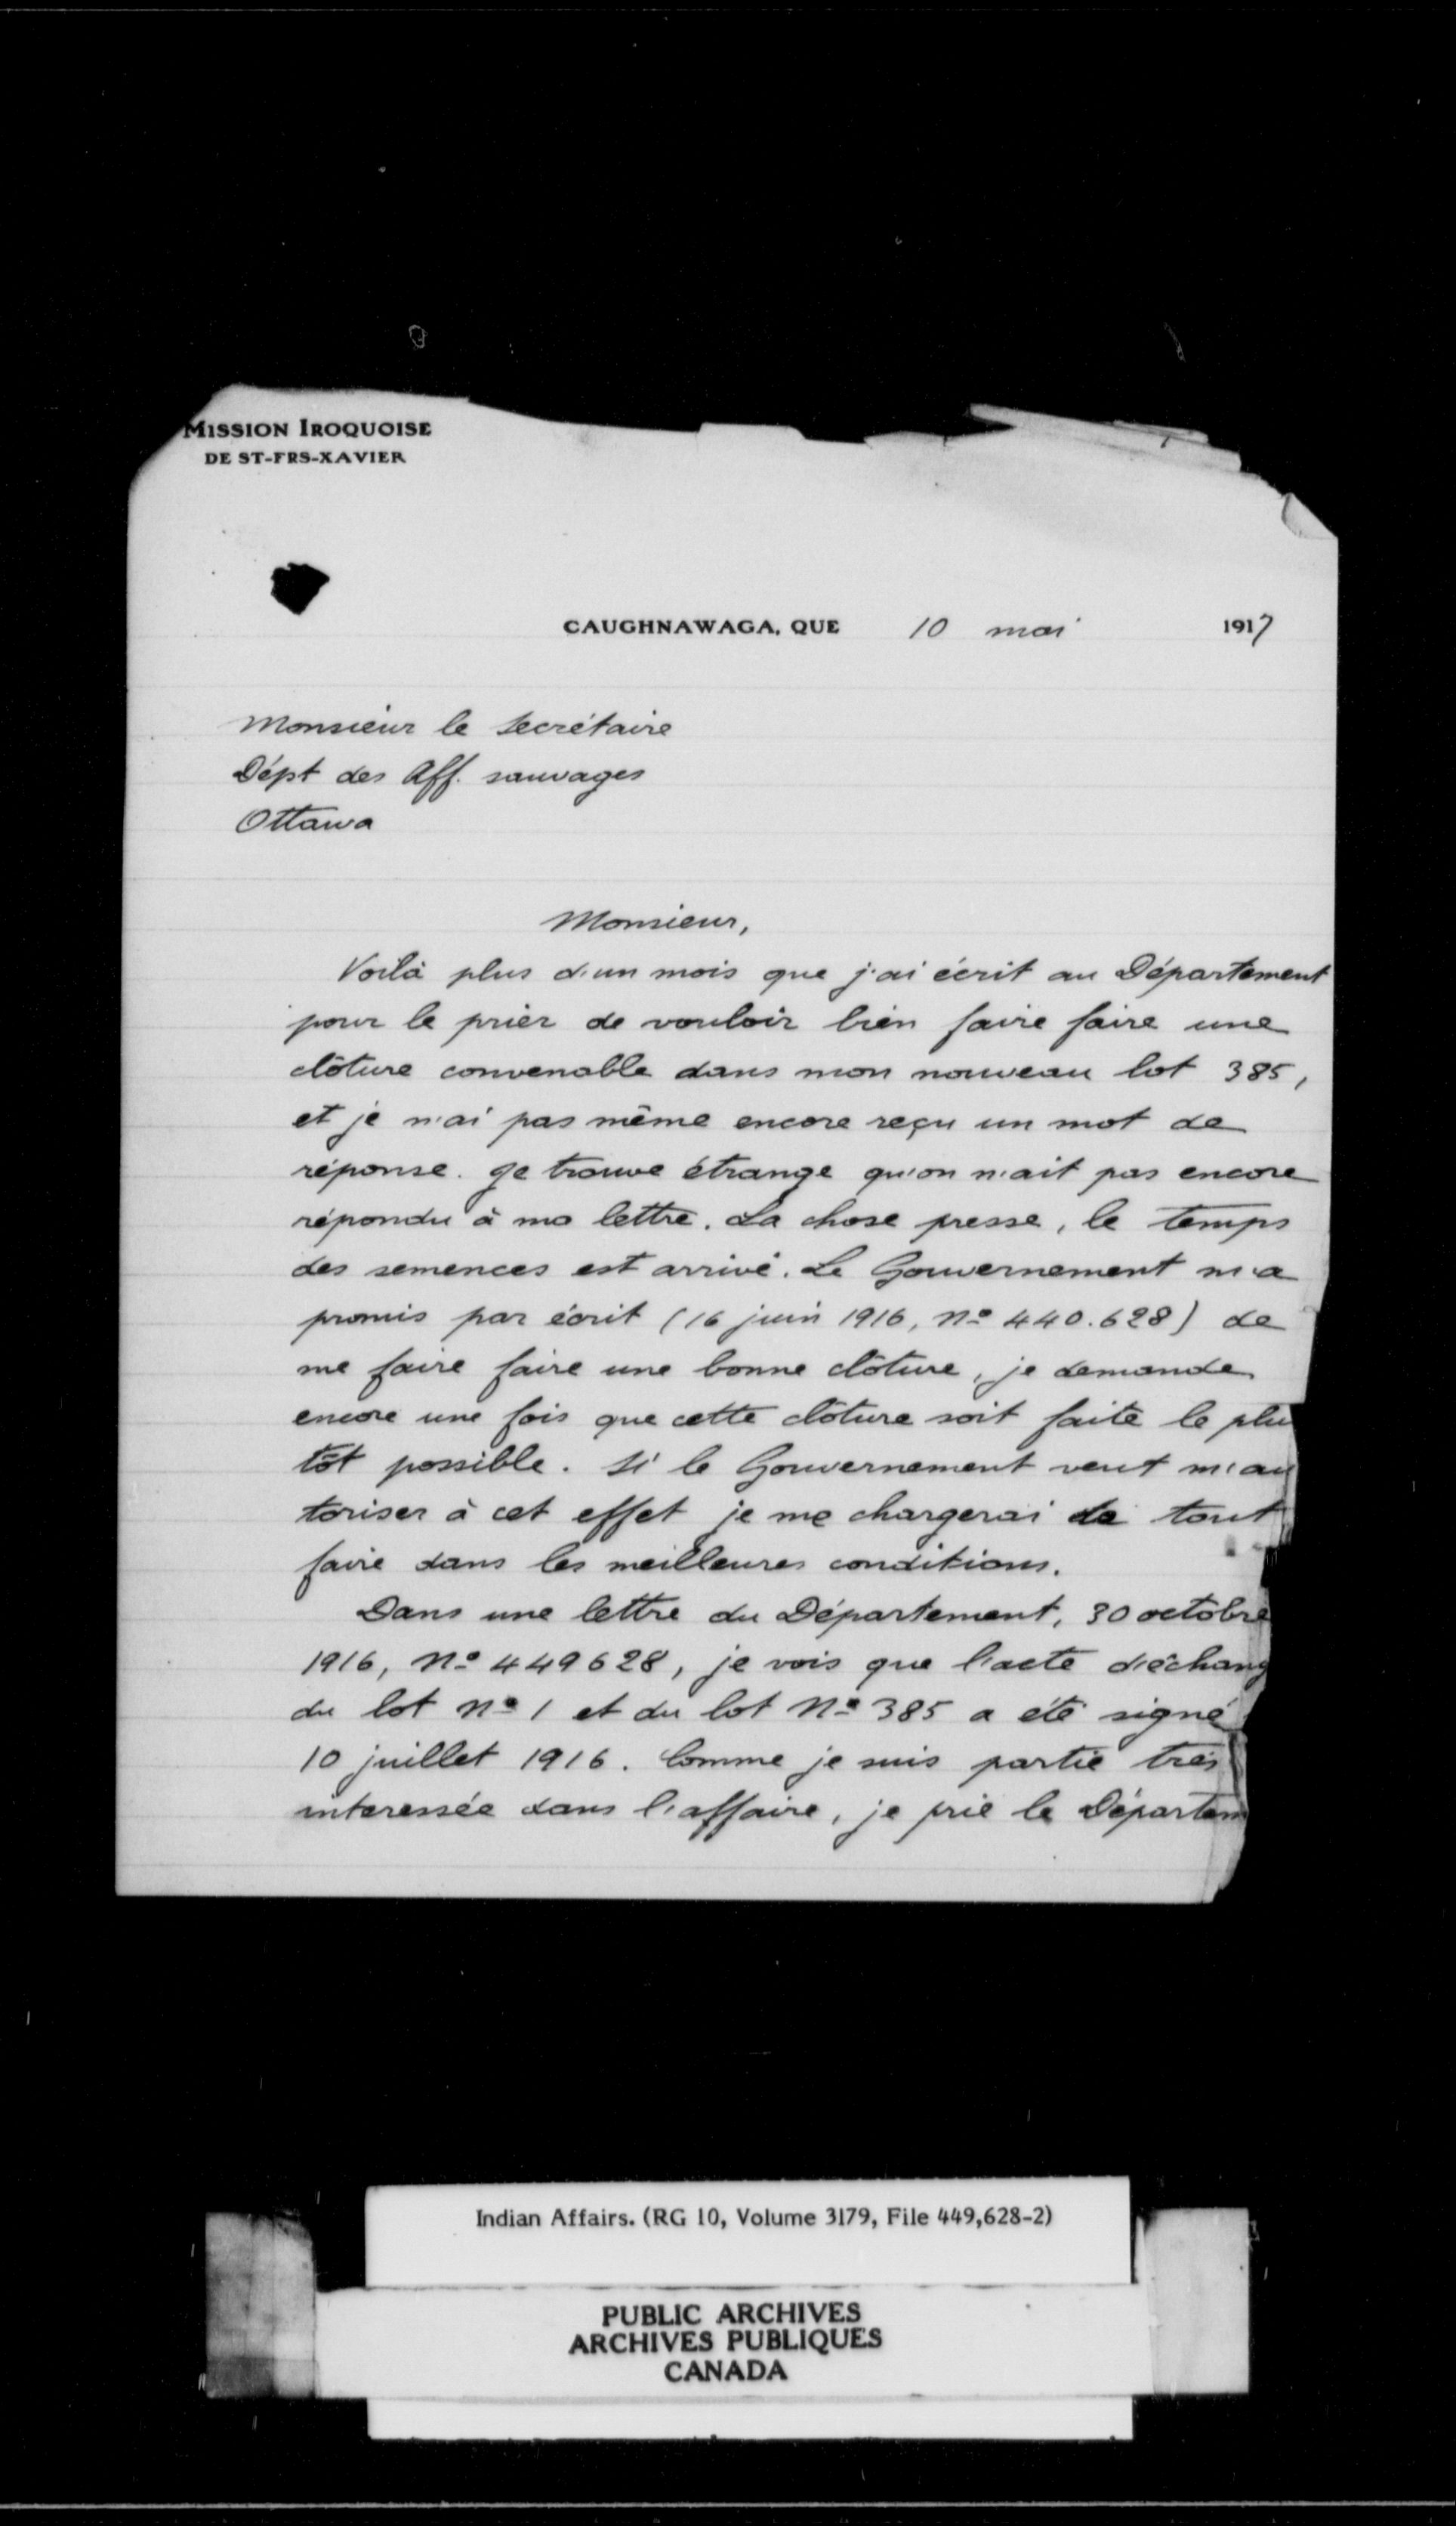 MISSION IROQUOISE
DE ST-FRS-XAVIER
CAUGHNAWAGA, QUE 10 mai 1917
Monsieur le Secrétaire
Dépt des Aff. sauvages
Ottawa
Monsieur,
Voilà plus d'un mois que j'ai écrit au Département
pour le prier de vouloir bien faire faire une
clôture convenable dans mon nouveau lot 385,
et je n'ai pas même encore reçu un mot de
réponse. Je trouve étrange qu'on n'ait pas encore
répondu à ma lettre. La chose presse, le temps
des semences est arrivé. Le Gouvernement m'a
promis par écrit (16 juin 1916, No 440.628) de
me faire faire une bonne clôture, je demande
encore une fois que cette clôture soit faite le plu
tôt possible. Si le Gouvernement veut m'au
toriser à cet effet je me chargerai de tout
faire dans les meilleures conditions.
Dans une lettre du Département, 30 octobre
1916, No 449628, je vois que l'acte d'échang
du lot No 1 et du lot No 385 a été signé
10 juillet 1916. Comme je suis partie très
interessée dans l'affaire, je prie le Départem
Indian Affairs. (RG 10, Volume 3179, File 449,628-2)
PUBLIC ARCHIVES
ARCHIVES PUBLIQUES
CANADA